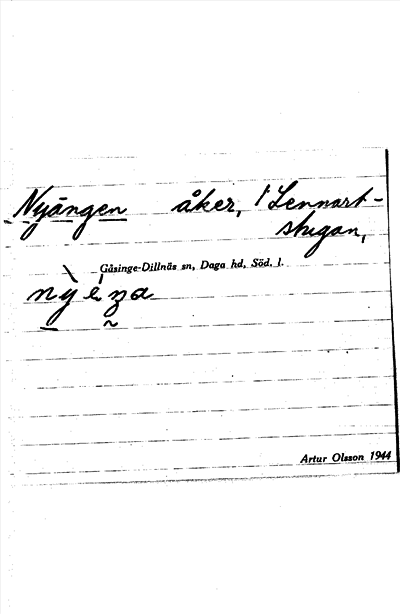 Nyängen åker, Lennart-
stugan,
Gåsinge-Dillnäs sn, Daga hd, Söd. l.
Artur Olsson 1944